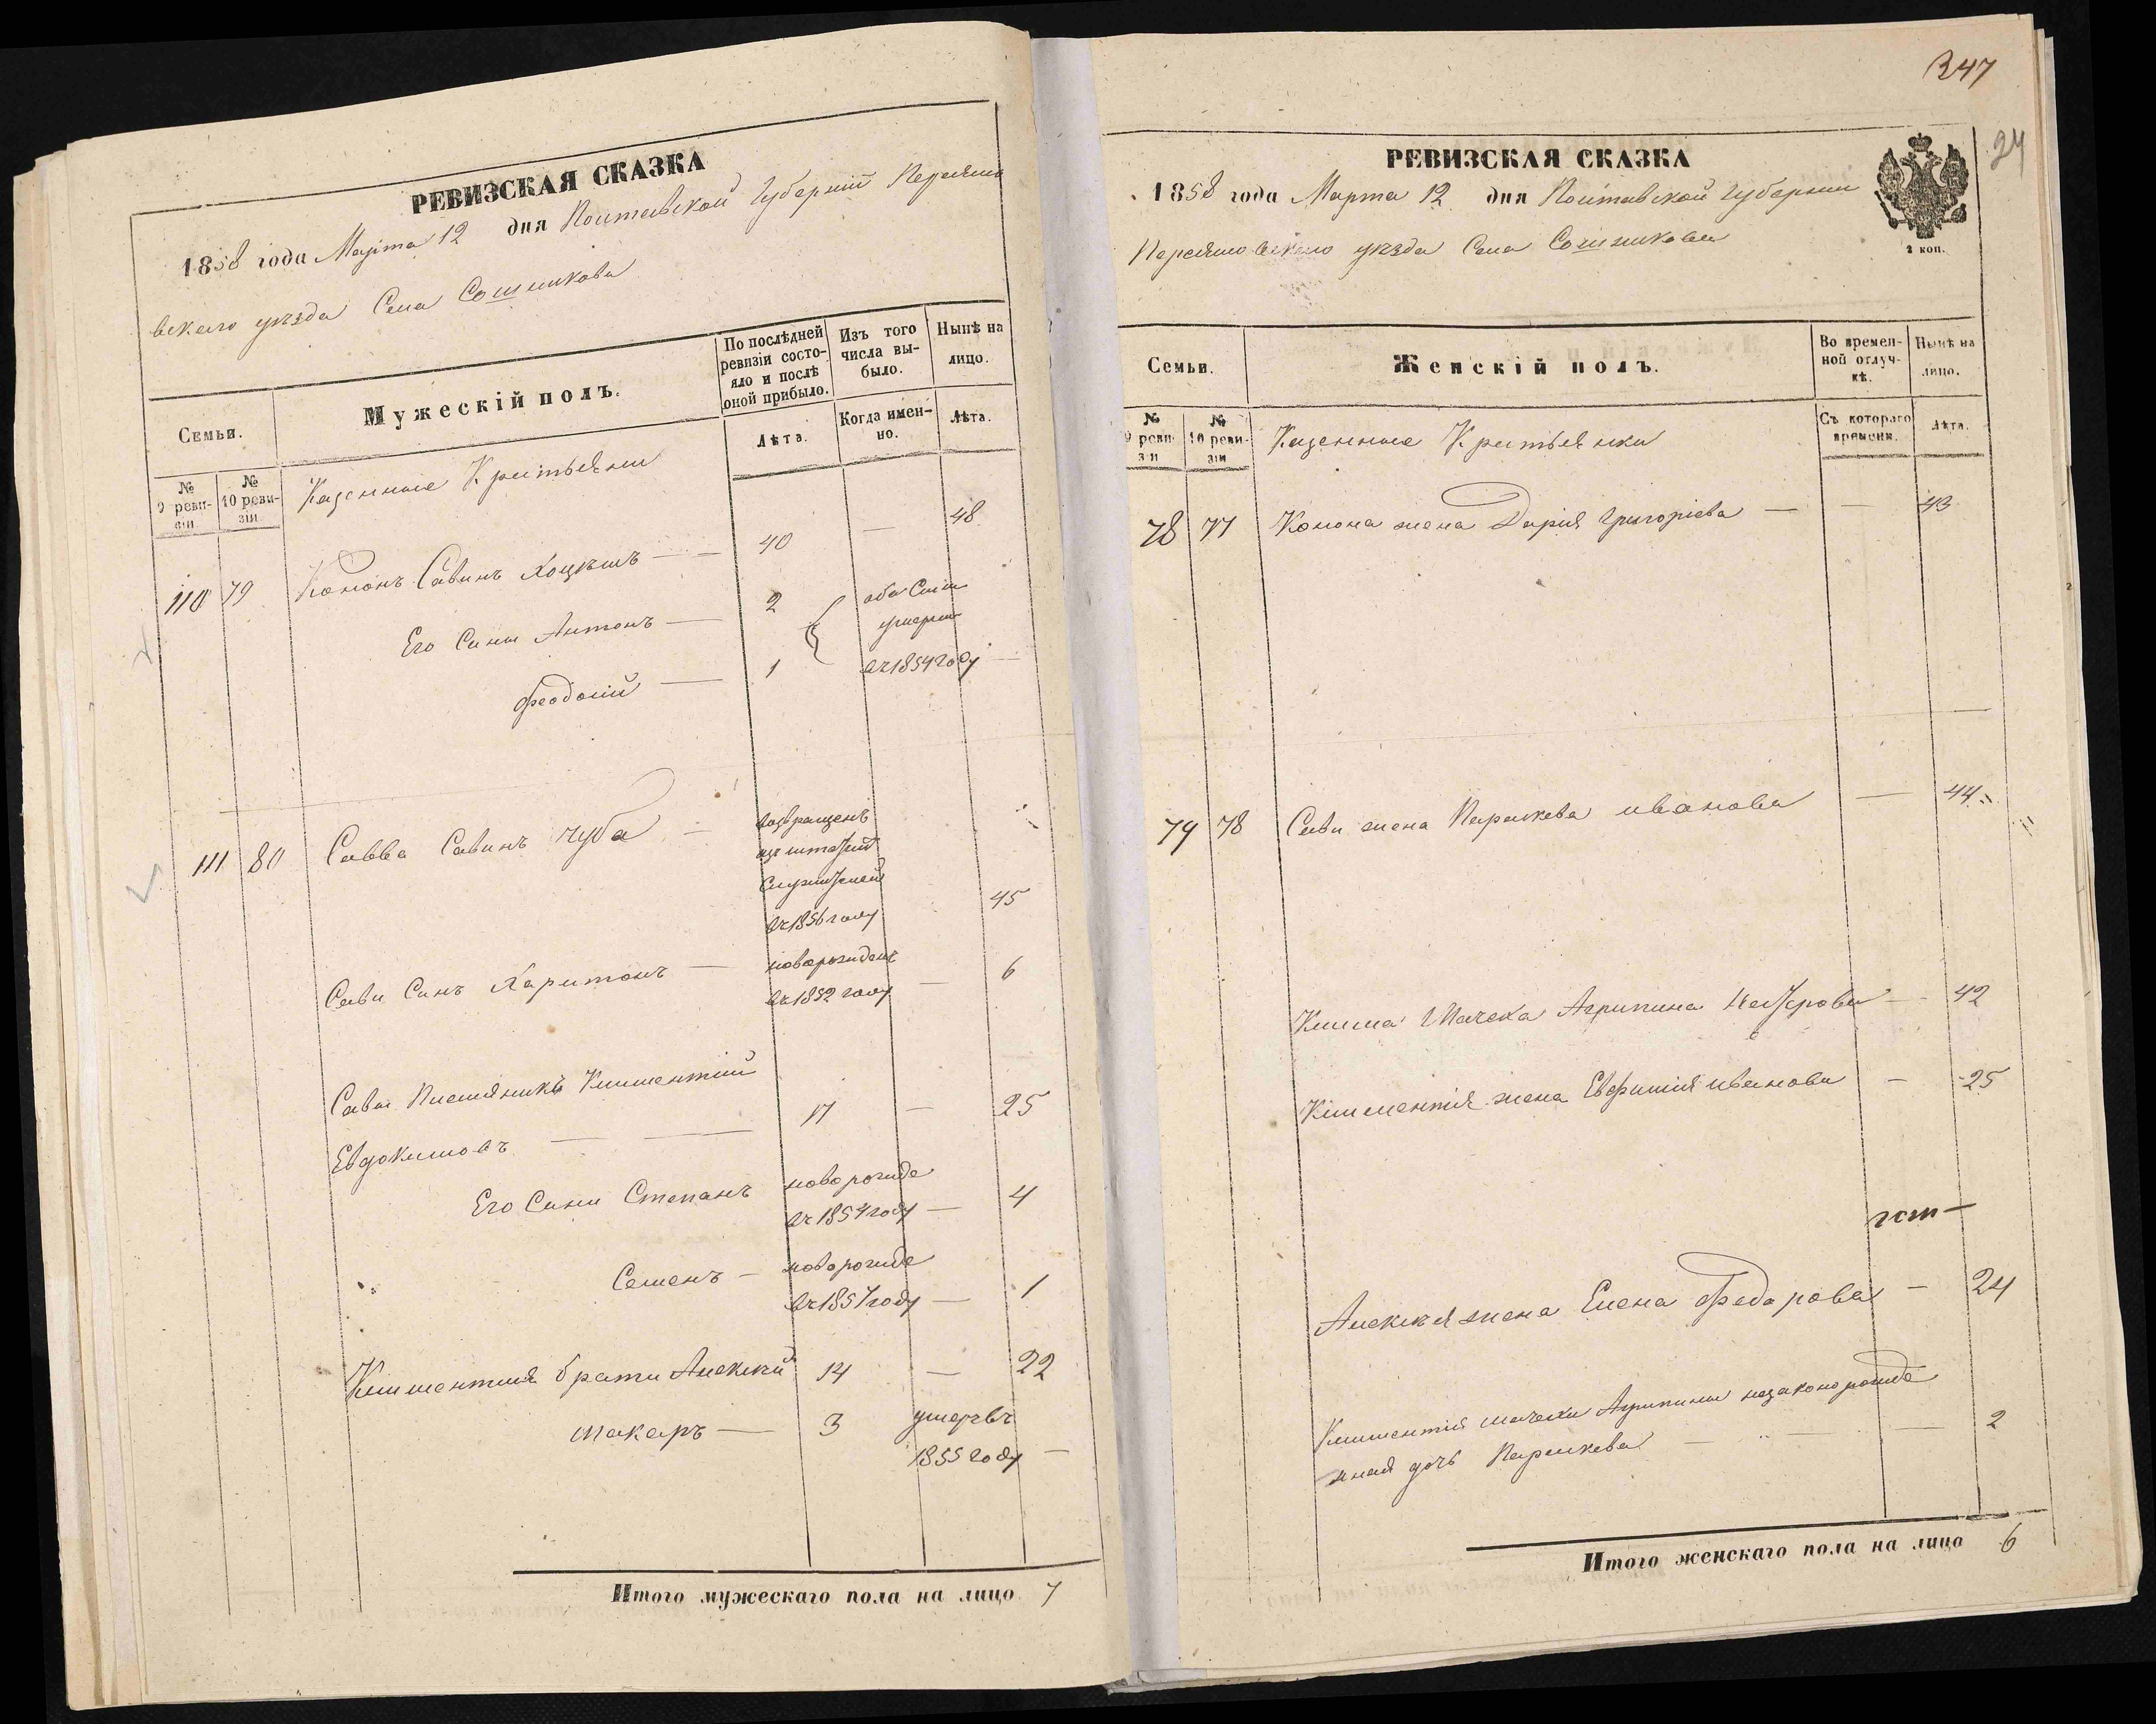 РЕВИЗСКАЯ СКАЗКА
1858 года Марта 12 дня Полтавской Губерніи Переясла
вскаго уѣзда Села Сошникова
Семьи.
Мужескій полъ.
По послѣдней ревизіи состояло и послѣ оной прибыло.
Изъ того числа выбыло.
Нынѣ на лицо.
№ 9 ревизіи
№ 10 ревизіи
Казенные Крестьяне
Лѣта.
Когда именно.
Лѣта.
110 79 Кононъ Савинъ — 40 — 48
Его Сины Антонъ — 2 оба Сіи
умерли
Феодосій — 1 въ 1854 году —
111 80 Савва Савинъ Чуба — возвращенъ
въ 1856 году 45
Савы Синъ Харитонъ — новорожденъ
въ 1852 году — 6
Савы Племяникъ Климентій
Евдокимовъ — — 17 — 25
Его Сины Степанъ новорожде
въ 1854 году — 4
Семенъ — новорожде
въ 1857 году — 1
Климентия брати Алексей 14 — 22
Макаръ — 3 умеръ въ
1855 году —
Итого мужескаго пола на лицо 7
347
24
РЕВИЗСКАЯ СКАЗКА
1858 года Марта 12 дня Полтавской Губерніи
Переяславского уѣзда Села Сошникова
2 коп.
Семьи.
Женскій полъ.
Во временной отлучкѣ.
Нынѣ на лицо.
№ 9 ревизіи
№ 10 ревизіи
Казенные Крестьянки
Съ котораго времени.
Лѣта.
78 77 Конона жена Дарія Григоріева — — 43
79 78 Савы жена Параскева иванова — 44
Мачеха Агрипина — 42
Климентія жена Евфимія иванова — 25
Алексея жена Елена Федорова — 24
Климентія мачехи Агрипины незаконорожде
нная дочь Параскева — — 2
Итого женскаго пола на лицо 6